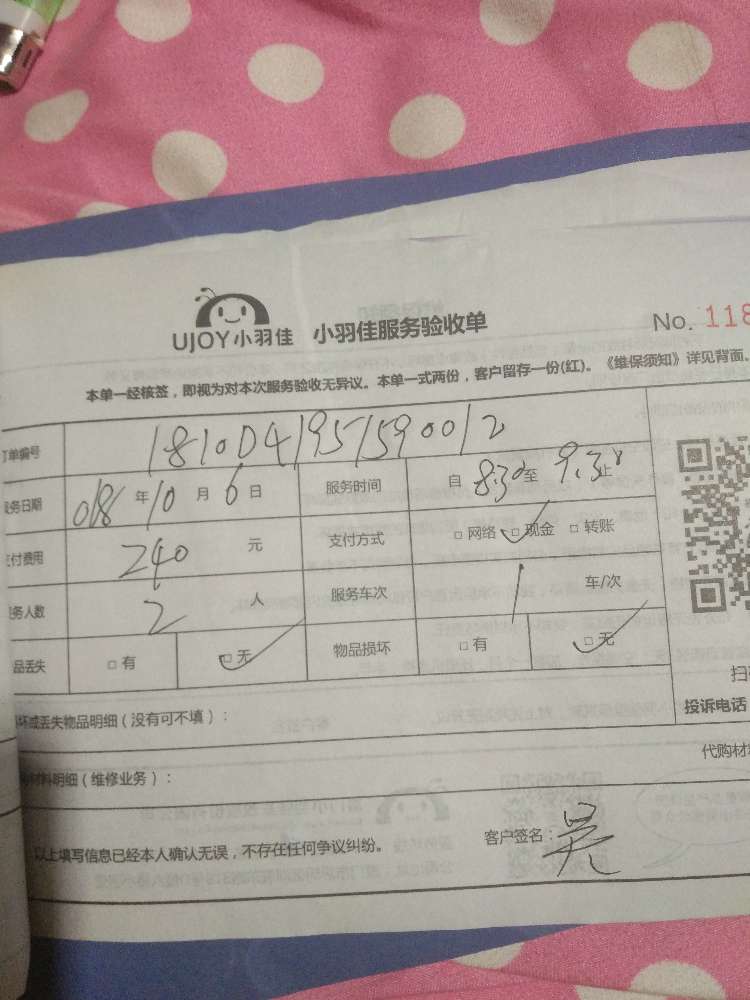 UJOY小羽佳 小羽佳服务验收单 No. 118
本单一经核签，即视为对本次服务验收无异议。本单一式两份，客户留存一份(红)。《维保须知》详见背面。
订单编号 1810041951590012
服务日期 018年10月6日 服务时间 自8:30至9:30止
支付费用 240元 支付方式 □网络 □现金 □转账
服务人数 2人 服务车次 1 车/次
品丢失 □有 □无 物品损坏 □有 □无
坏或丢失物品明细（没有可不填）： 投诉电话
材料明细（维修业务）： 代购材
以上填写信息已经本人确认无误，不存在任何争议纠纷。 客户签名：吴